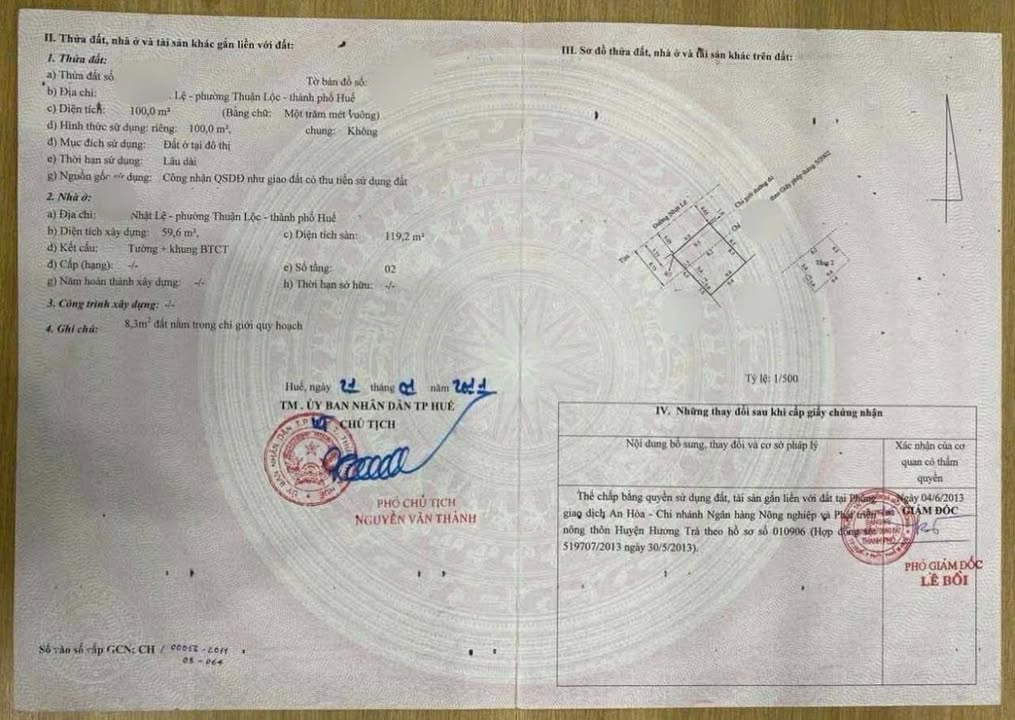 II. Thửa đất, nhà ở và tài sản khác gắn liền với đất:
1. Thửa đất:
a) Thửa đất số
Tờ bản đồ số:
b) Địa chỉ: Lệ - phường Thuận Lộc - thành phố Huế
c) Diện tích: 100,0 m² (Bằng chữ: Một trăm mét vuông)
d) Hình thức sử dụng: riêng: 100,0 m², chung: Không
đ) Mục đích sử dụng: Đất ở tại đô thị
e) Thời hạn sử dụng: Lâu dài
g) Nguồn gốc sử dụng: Công nhận QSDĐ như giao đất có thu tiền sử dụng đất
2. Nhà ở:
a) Địa chỉ: Nhật Lệ - phường Thuận Lộc - thành phố Huế
b) Diện tích xây dựng: 59,6 m², c) Diện tích sàn: 119,2 m²
d) Kết cấu: Tường + khung BTCT
đ) Cấp (hạng): -/- e) Số tầng: 02
g) Năm hoàn thành xây dựng: -/- h) Thời hạn sở hữu: -/-
3. Công trình xây dựng: -/-
4. Ghi chú: 8,3m² đất nằm trong chỉ giới quy hoạch
Huế, ngày 21 tháng 01 năm 2011
TM . ỦY BAN NHÂN DÂN TP HUẾ
KT CHỦ TỊCH
PHÓ CHỦ TỊCH
NGUYỄN VĂN THÀNH
Số vào sổ cấp GCN: CH / 00058-2011
05-064
III. Sơ đồ thửa đất, nhà ở và tài sản khác trên đất:
Đường Nhật Lệ
Chỉ giới đường đỏ
theo Giấy phép tháng 5/2002
Tầng 2
Tỷ lệ: 1/500
IV. Những thay đổi sau khi cấp giấy chứng nhận
Nội dung bổ sung, thay đổi và cơ sở pháp lý
Xác nhận của cơ
quan có thẩm
quyền
Thế chấp bằng quyền sử dụng đất, tài sản gắn liền với đất tại Phòng
giao dịch An Hòa - Chi nhánh Ngân hàng Nông nghiệp và Phát triển
nông thôn Huyện Hương Trà theo hồ sơ số 010906 (Hợp đồng số
519707/2013 ngày 30/5/2013).
Ngày 04/6/2013
GIÁM ĐỐC
PHÓ GIÁM ĐỐC
LÊ BÔI